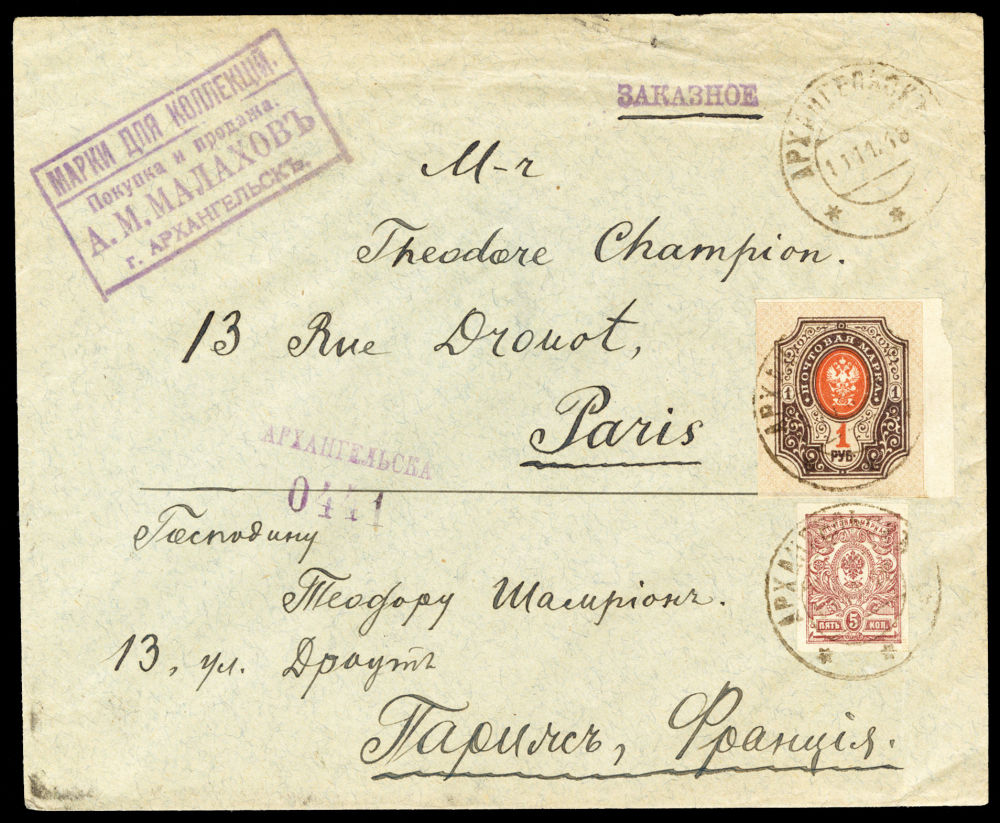 МАРКИ ДЛЯ КОЛЛЕКЦІЙ.
Покупка и продажа.
А. М. МАЛАХОВЪ
г. АРХАНГЕЛЬСКЪ.
ЗАКАЗНОЕ
АРХАНГЕЛЬСКЪ
11.11.18
M-r
Theodore Champion.
13 Rue Drouot,
Paris
ПОЧТОВАЯ МАРКА
1 1
1
РУБ.
АРХАНГЕЛЬСКА
0441
Господину
Теодору Шампіонъ.
13, ул. Друотъ
Парижъ, Франція.
ПОЧТОВАЯ МАРКА
ПЯТЬ 5 КОП.
АРХАНГЕЛЬСКЪ